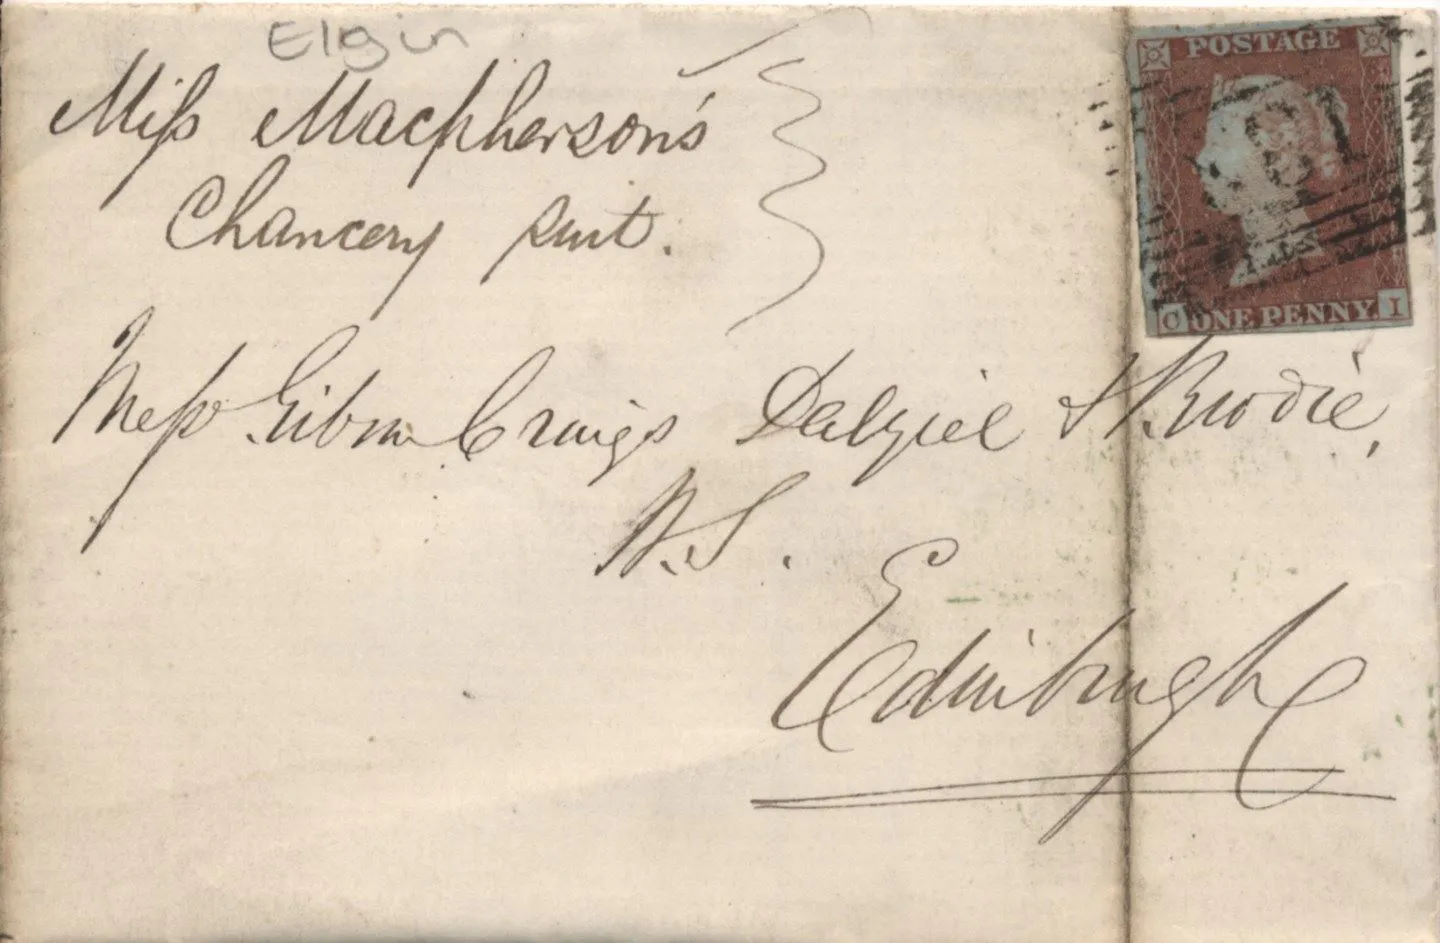 Elgin
Miss Macpherson's
Chancery suit.
Mess.rs Gibson Craigs Dalziel & Brodie,
W.S.
Edinburgh
POSTAGE
131
O ONE PENNY. I